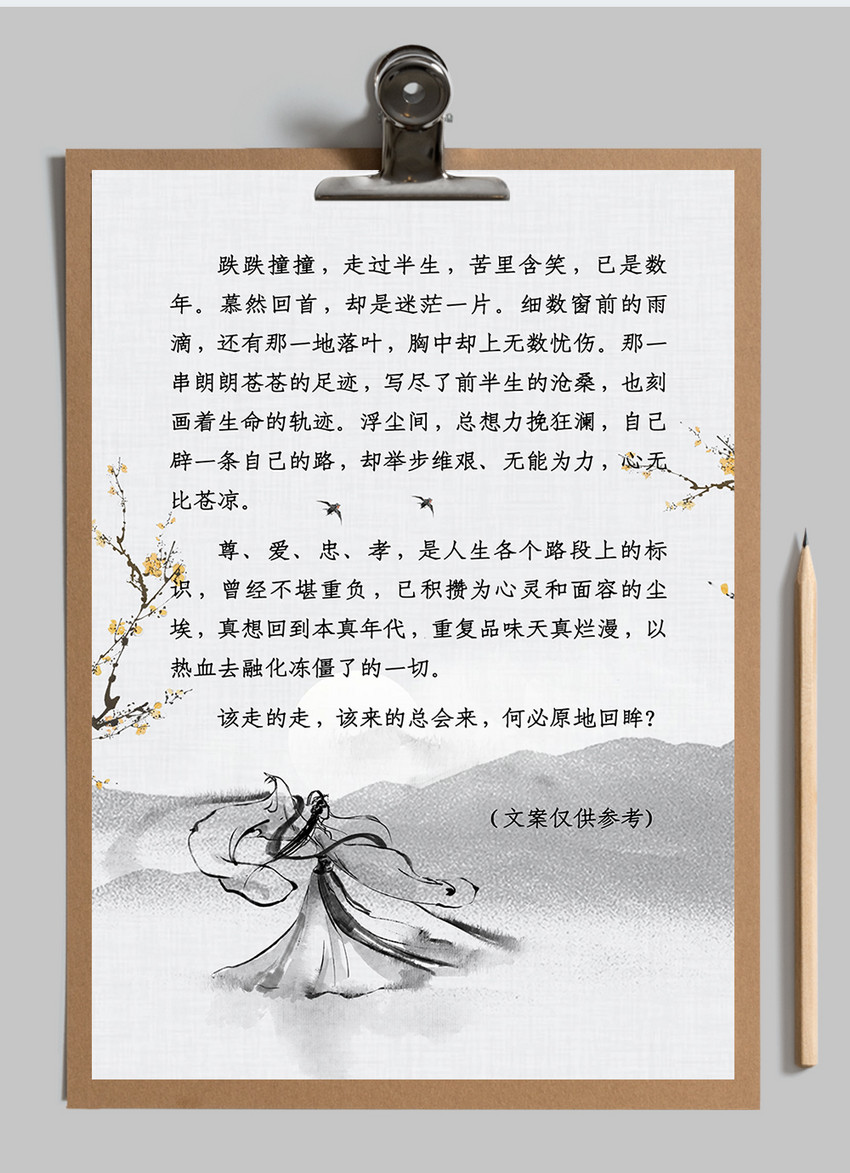 跌跌撞撞，走过半生，苦里含笑，已是数
年。慕然回首，却是迷茫一片。细数窗前的雨
滴，还有那一地落叶，胸中却上无数忧伤。那一
串朗朗苍苍的足迹，写尽了前半生的沧桑，也刻
画着生命的轨迹。浮尘间，总想力挽狂澜，自己
辟一条自己的路，却举步维艰、无能为力，心无
比苍凉。
尊、爱、忠、孝，是人生各个路段上的标
识，曾经不堪重负，已积攒为心灵和面容的尘
埃，真想回到本真年代，重复品味天真烂漫，以
热血去融化冻僵了的一切。
该走的走，该来的总会来，何必原地回眸？
（文案仅供参考）